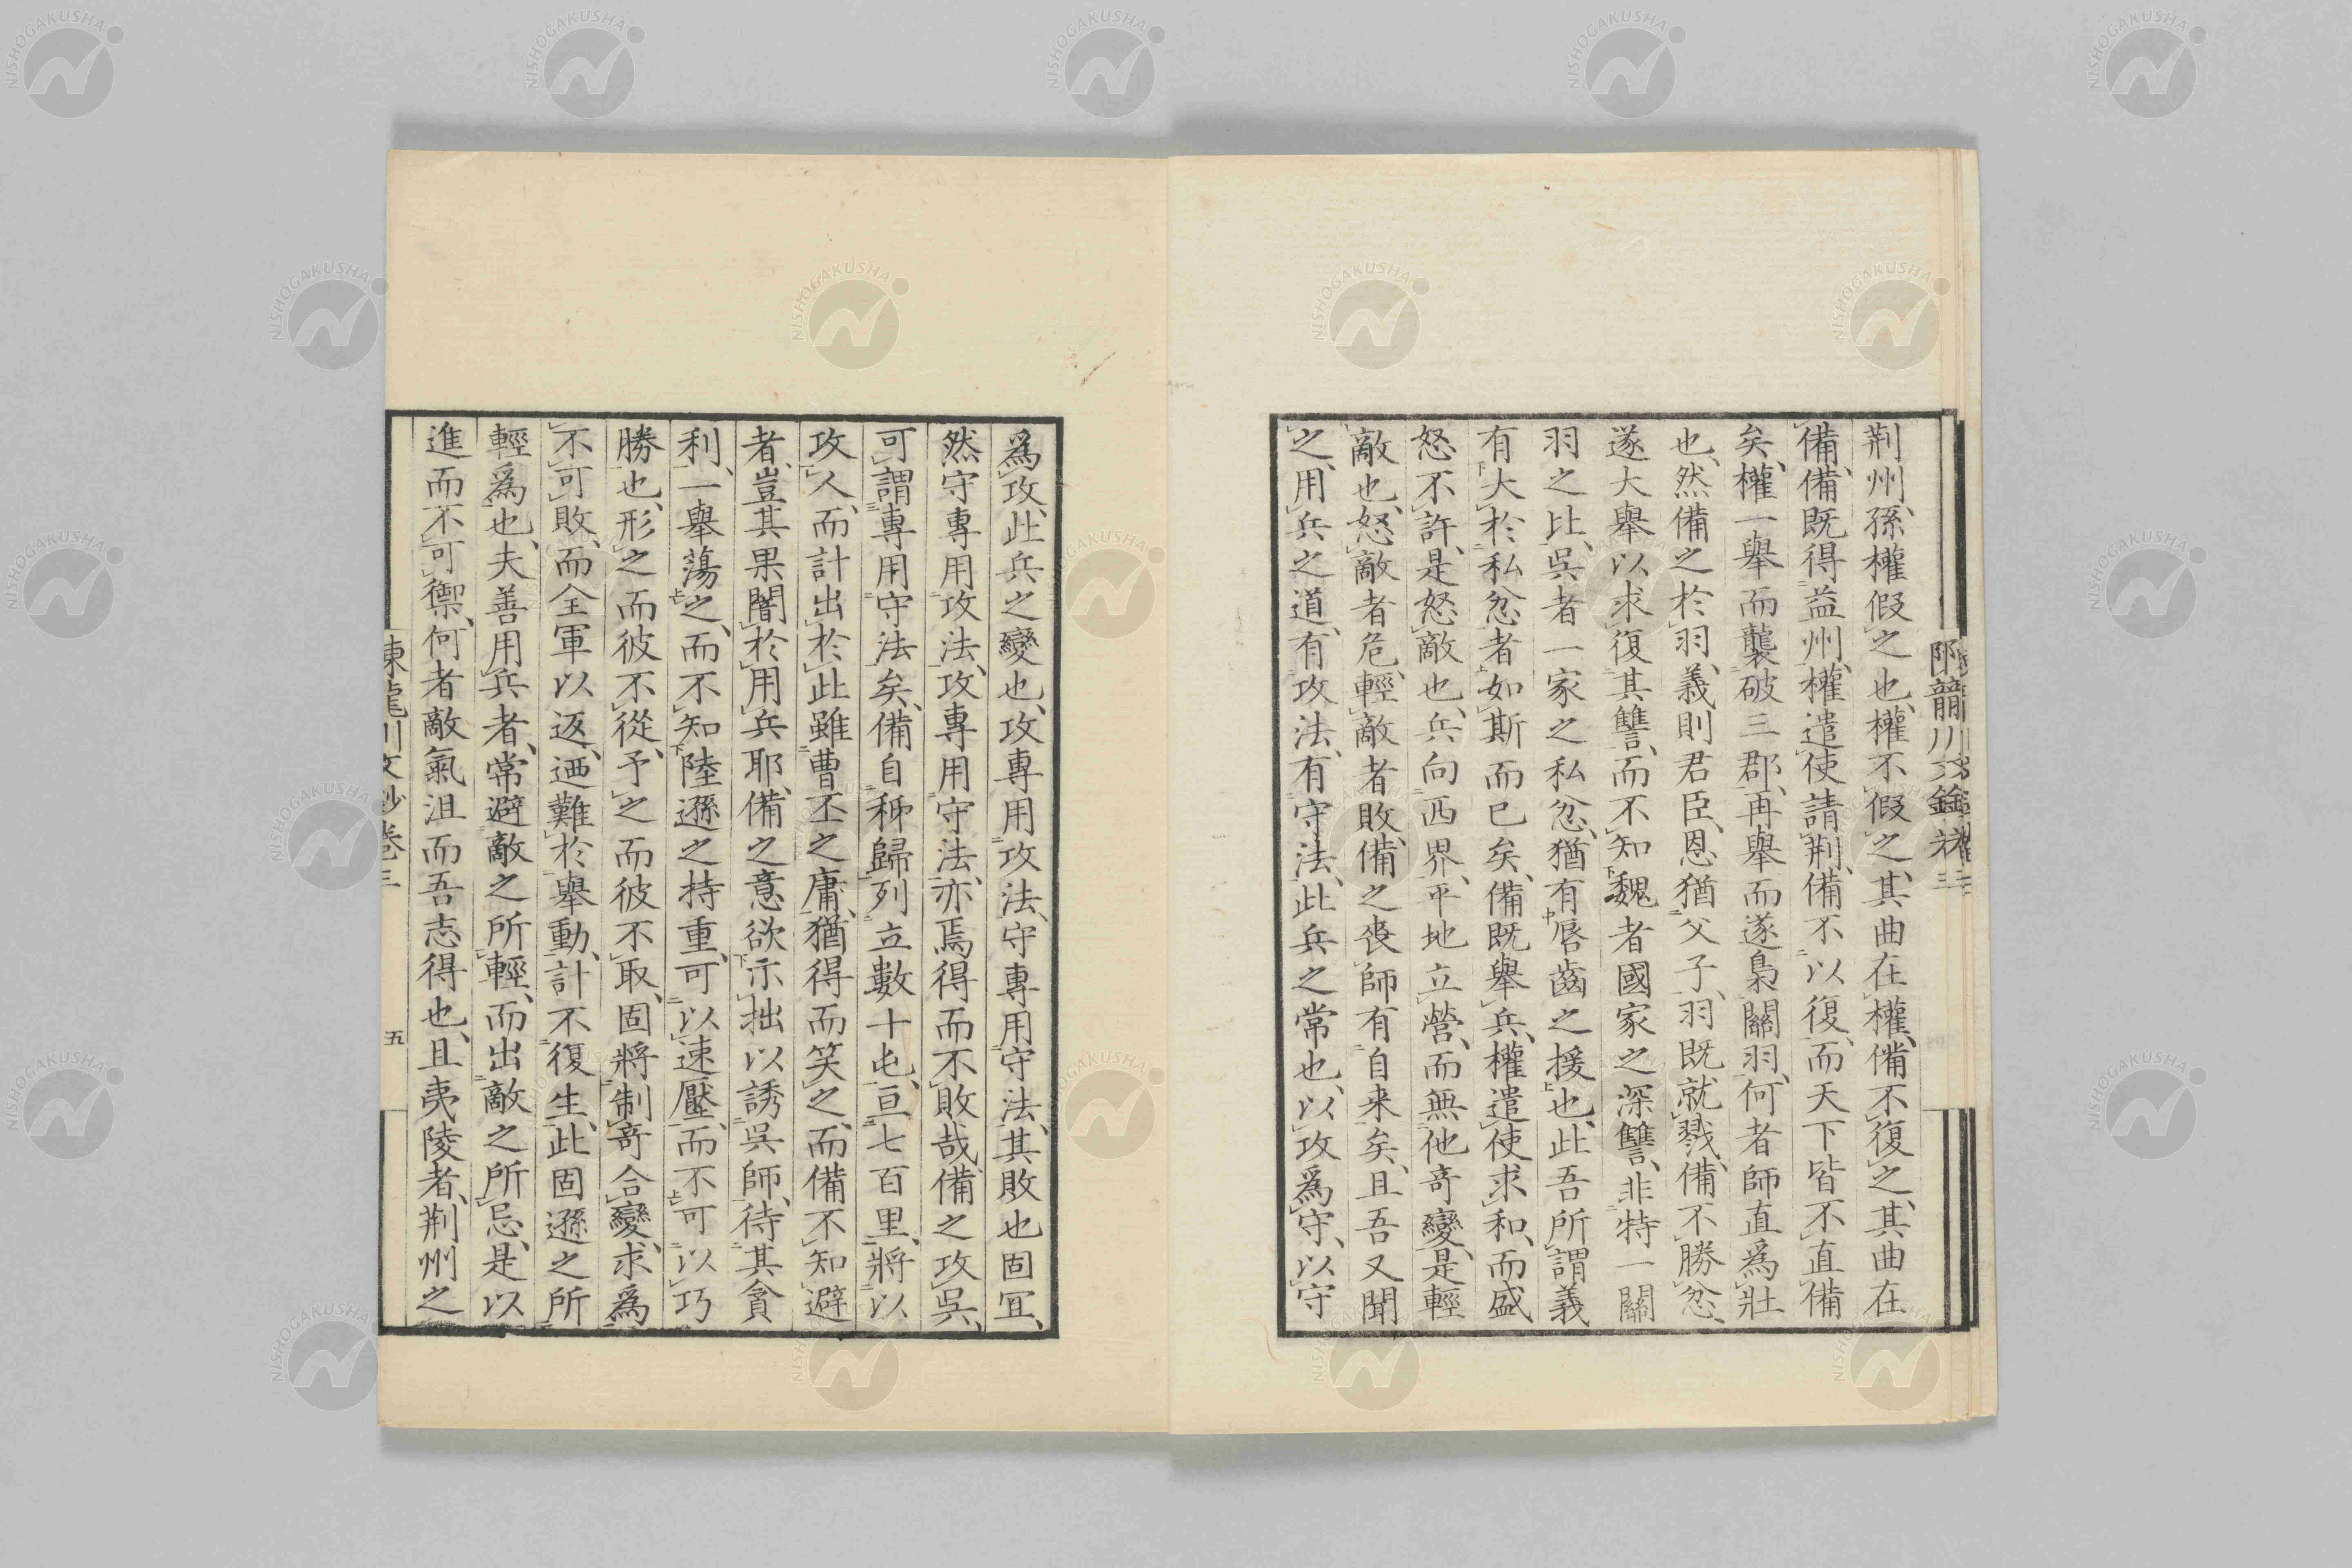 荆州、孫權假之也、權不假之、其曲在權、備不復之、其曲在
備、備既得益州、權遣使請荆、備不以復、而天下皆不直備
矣、權一舉而襲破三郡、再舉而遂梟關羽、何者師直爲壯
也、然備之於羽、義則君臣、恩猶父子、羽既就戮、備不勝忿、
遂大舉以求復其讐、而不知魏者國家之深讐、非特一關
羽之比、吳者一家之私忿、猶有脣齒之援也、此吾所謂義
有大於私忿者如斯而已矣、備既舉兵、權遣使求和、而盛
怒不許、是怒敵也、兵向西界、平地立營、而無他竒變、是輕
敵也、怒敵者危、輕敵者敗、備之喪師有自来矣、且吾又聞
之、用兵之道、有攻法、有守法、此兵之常也、以攻爲守、以守
爲攻、此兵之變也、攻專用攻法、守專用守法、其敗也固冝、
然守專用攻法、攻專用守法、亦焉得而不敗哉、備之攻吳、
可謂專用守法矣、備自秭歸列立數十屯、亘七百里、將以
攻人、而計出於此、雖曹丕之庸、猶得而笑之、而備不知避
者、豈其果闇於用兵耶、備之意欲示拙以誘吳師、待其貪
利、一舉蕩之、而不知陸遜之持重、可以速壓、而不可以巧
勝也、形之而彼不從、予之而彼不取、固將制竒合變、求爲
不可敗、而全軍以返、迺難於舉動、計不復生、此固遜之所
輕爲也、夫善用兵者、常避敵之所輕、而出敵之所忌、是以
進而不可禦、何者敵氣沮而吾志得也、且夷陵者、荆州之
陳龍川文鈔卷三
五
NISHOGAKUSHA